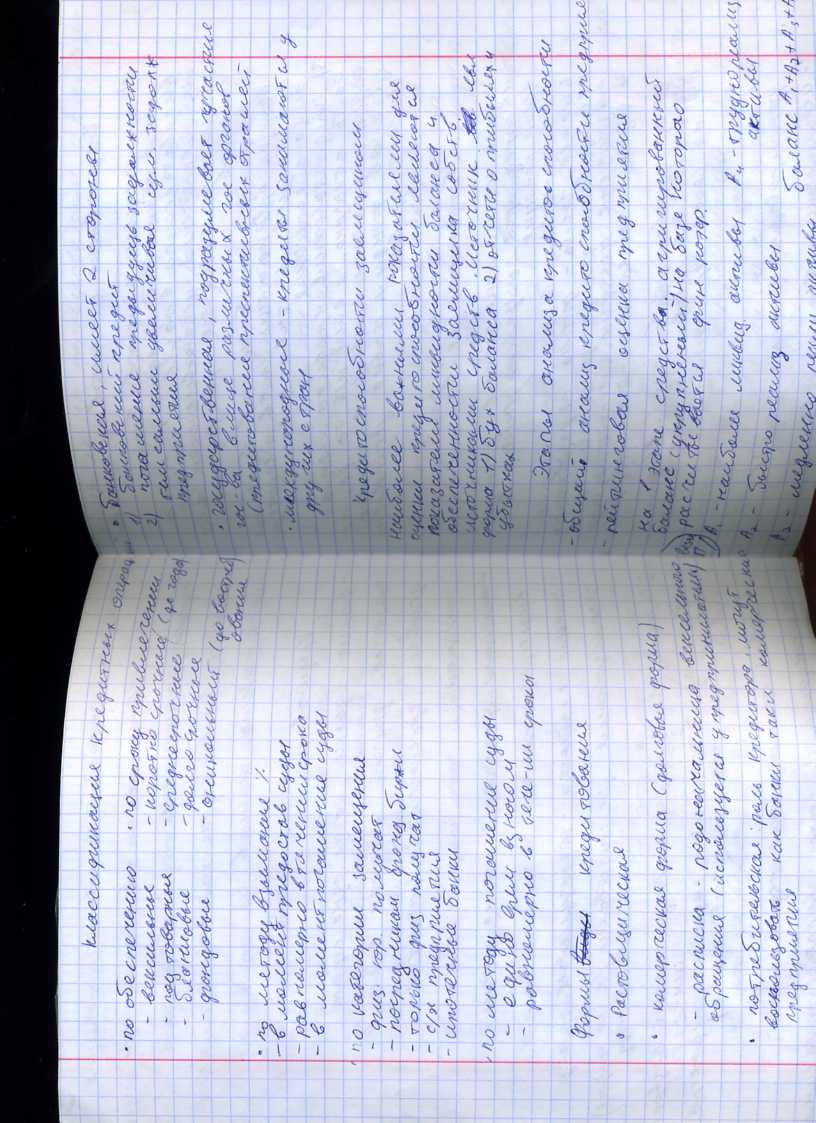 Классификация кредитных операц
• по обеспечению
- вексильные
- под товарные
- бланковые
- фондовые
• по сроку привлечении
- коротко срочные (до года)
- среднесрочные
- долго срочные
- онкольный (до востреб
ования
• по методу взимания %
- в момент предостав суды
- равномерно в течении срока
- в момент погашение суды
• по категории замещения
- физ юр получат
- посредникам фонд биржи
- только физ получат
- с/х предприятия
- ипотечные банки
• по методу погашение суды
- един врем взносом
- равномерно в тече-ии срока
Формы кредитования
• Ростовщическая
• комерческая форма (долговая форма)
- расписка - родоначальница вексельного
обращения (используется у предпринимателей)
• потребительская: роль кредитора могут
как банки так и комерческие
предприятия
• банковская, имеет 2 стороны
1) банковский кредит
погашение предыдущь задолжности
2) тем самым увеличивая сум задолж
предприятия
• государственная, подразумевает участие
гос-ва в лице различных гос органов
(кредитование преоритетных отраслей
• международные - кредиты занимаются у
других стран
Кредитоспособности заемщиком
Наиболее важными показателеми для
оценки кредитоспособности являются
показатели ликвидности баланса и
обеспеченности заемщика собств
источниками средств. Источник явл
форма 1) бух баланса 2) отчет о прибылях и
убытках
Этапы анализа кредитоспособности
- общий анализ кредитоспособности предприя
- рейтинговая оценка предприятия
на 1 этапе средства, агрегированный
баланс (укрупненный) на базе которого
рассчитывается фин коэф.
A1 - наиболее ликвид. активы A4 - трудно реализ
активы
A2 - быстро реализ активы
A3 - медленно реализ активы баланс A1+A2+A3+A